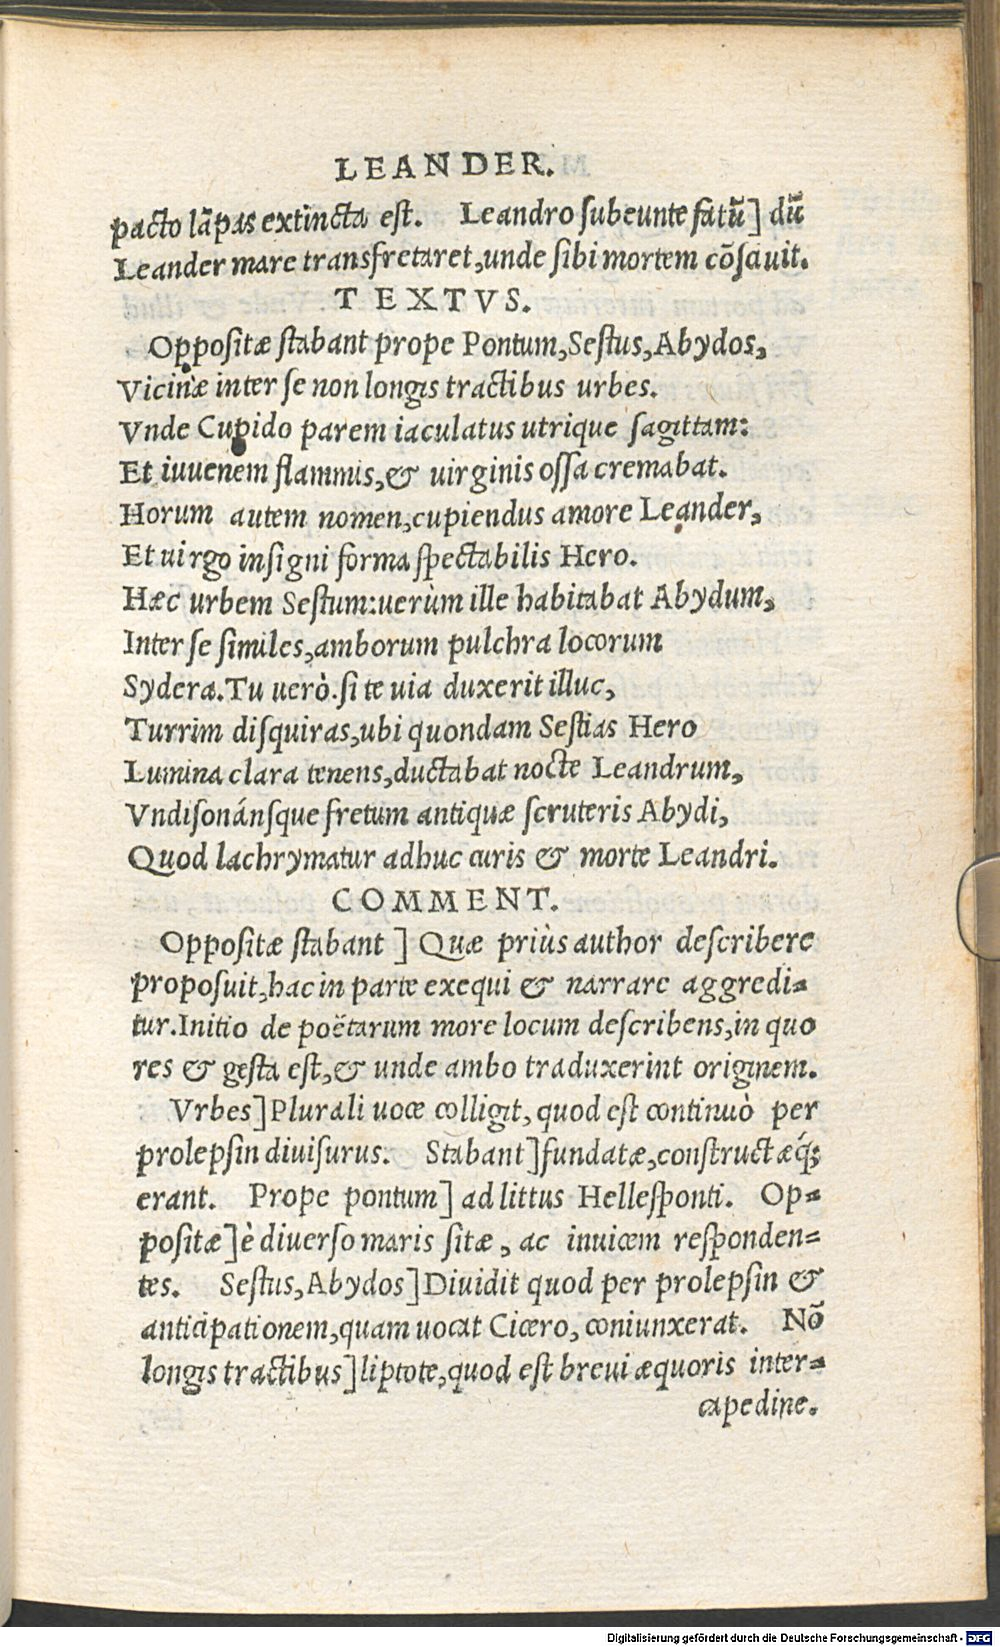 LEANDER.
pacto lãpas extincta est. Leandro subeunte fatũ] dũ
Leander mare transfretaret, unde sibi mortem cõsciuit.
TEXTVS.
Oppositæ stabant prope Pontum, Sestus, Abydos,
Vicinæ inter se non longis tractibus urbes.
Vnde Cupido parem iaculatus utrique sagittam:
Et iuuenem flammis, & uirginis ossa cremabat.
Horum autem nomen, cupiendus amore Leander,
Et uirgo insigni forma spectabilis Hero.
Hæc urbem Sestum: uerùm ille habitabat Abydum,
Inter se similes, amborum pulchra locorum
Sydera. Tu uerò. si te uia duxerit illuc,
Turrim disquiras, ubi quondam Sestias Hero
Lumina clara tenens, ductabat nocte Leandrum,
Vndisonánsque fretum antiquæ scruteris Abydi,
Quod lachrymatur adhuc curis & morte Leandri.
COMMENT.
Oppositæ stabant ] Quæ priùs author describere
proposuit, hac in parte exequi & narrare aggredi-
tur. Initio de poëtarum more locum describens, in quo
res & gesta est, & unde ambo traduxerint originem.
Vrbes] Plurali uoce colligit, quod est continuò per
prolepsin diuisurus. Stabant] fundatæ, constructæq́;
erant. Prope pontum] ad littus Hellesponti. Op-
positæ] è diuerso maris sitæ, ac inuicem responden-
tes. Sestus, Abydos] Diuidit quod per prolepsin &
anticipationem, quam uocat Cicero, coniunxerat. Nõ
longis tractibus] liptote, quod est breui æquoris inter-
capedine.
Digitalisierung gefördert durch die Deutsche Forschungsgemeinschaft - DFG